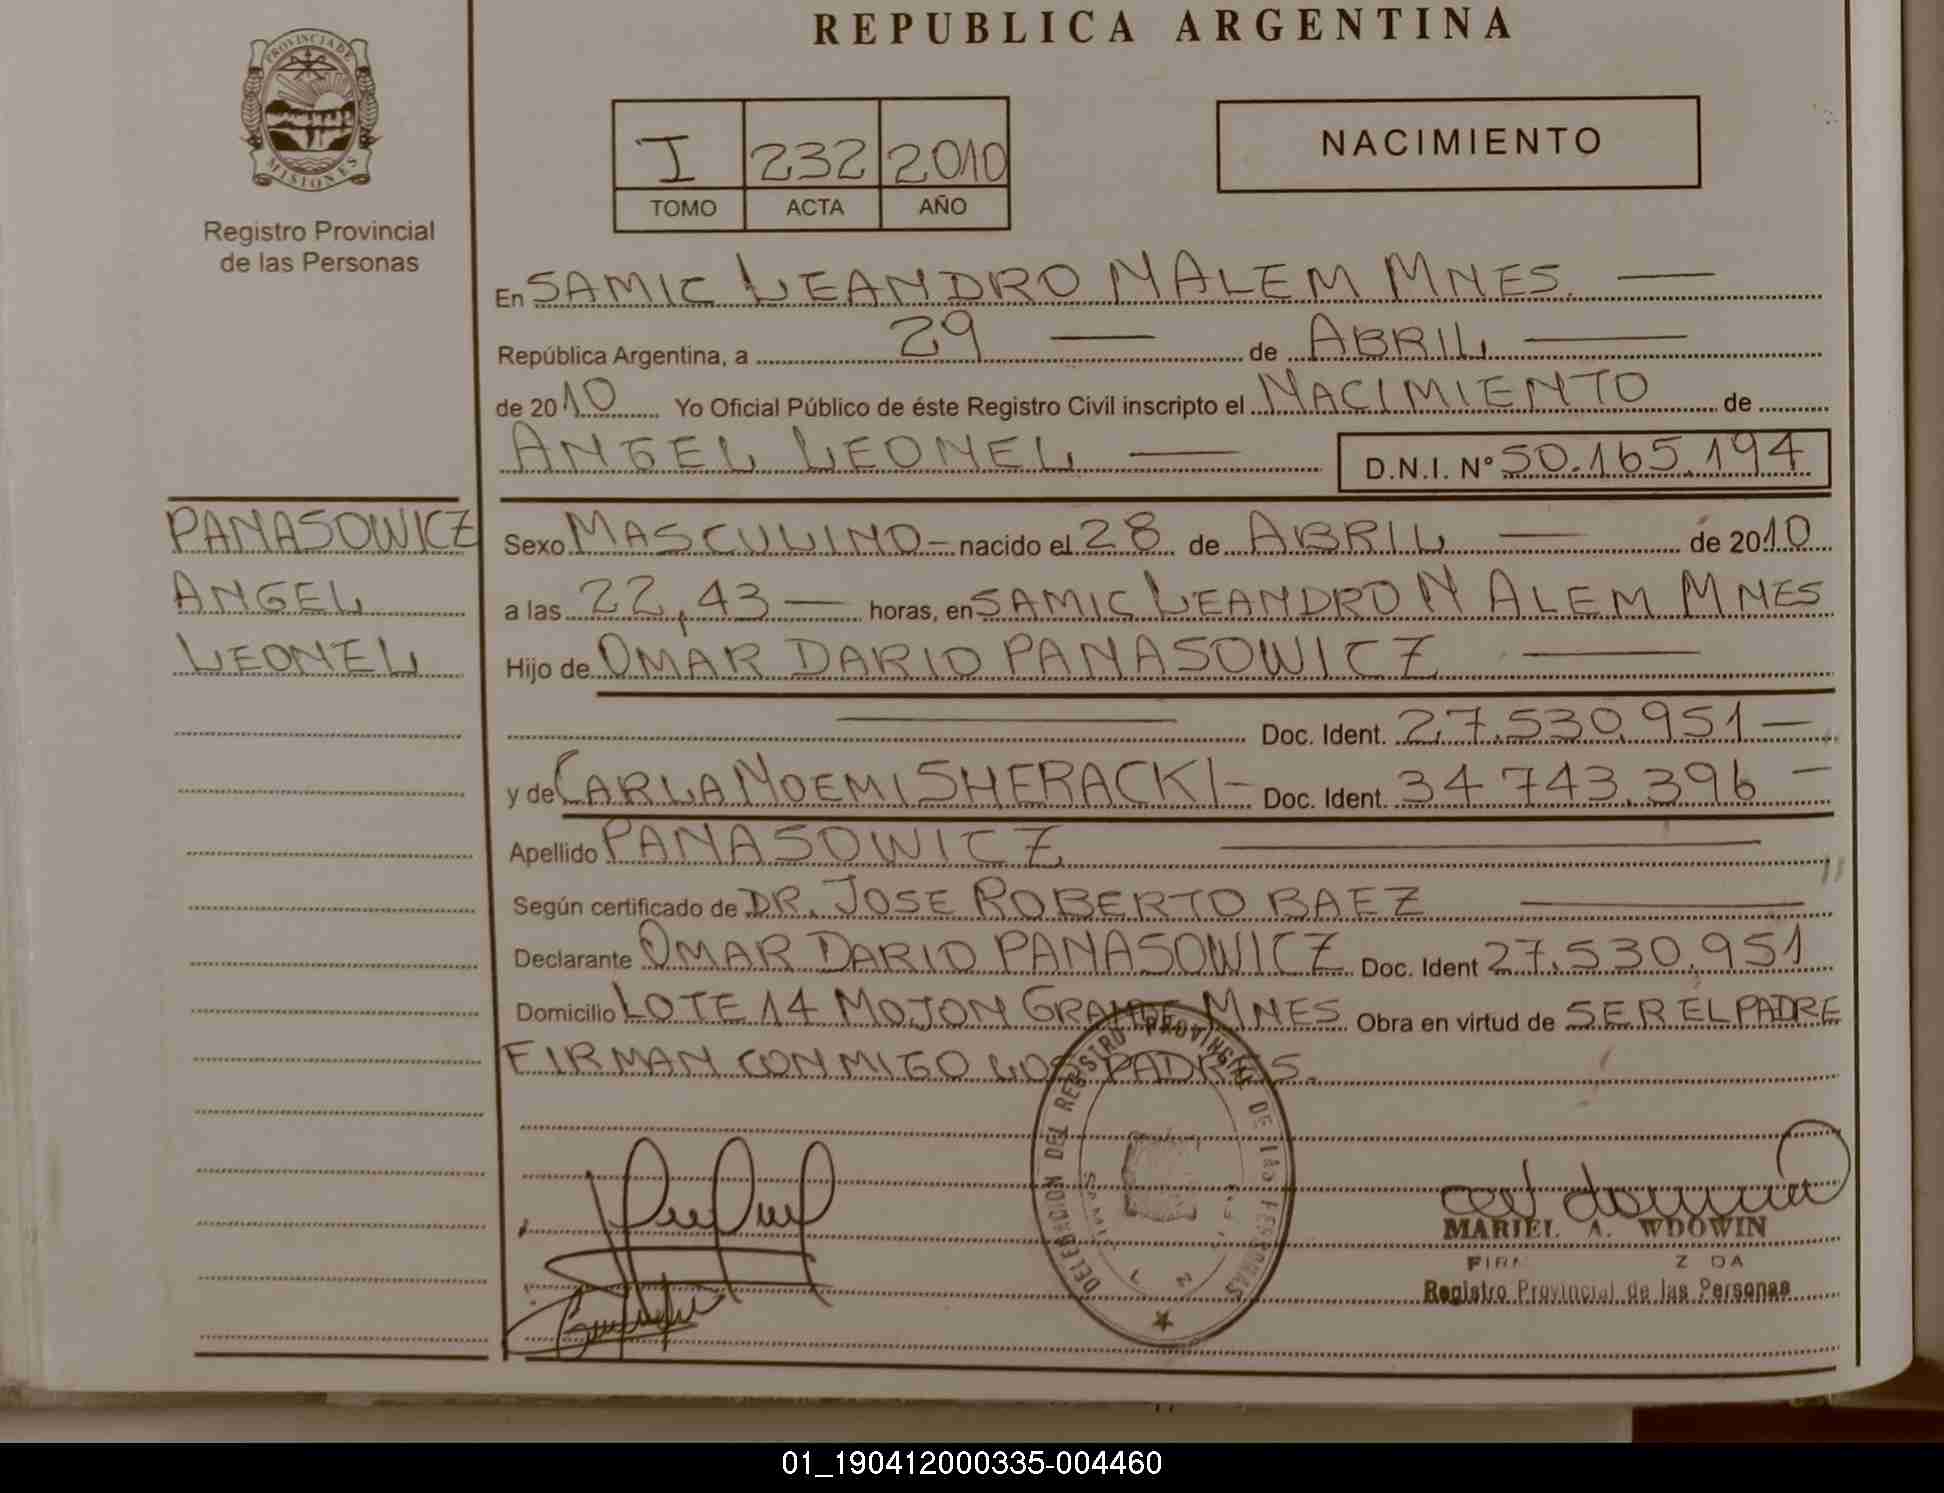 REPUBLICA ARGENTINA
PROVINCIA DE
MISIONES
Registro Provincial
de las Personas
I 232 2010
TOMO ACTA AÑO
NACIMIENTO
En SAMIC LEANDRO N ALEM MNES.
República Argentina, a 29 de ABRIL
de 2010 Yo Oficial Público de éste Registro Civil inscripto el NACIMIENTO de
ANGEL LEONEL D.N.I. Nº 50.165.194
PANASOWICZ
ANGEL
LEONEL
Sexo MASCULINO - nacido el 28 de ABRIL de 2010
a las 22,43 horas, en SAMIC LEANDRO N ALEM MNES
Hijo de OMAR DARIO PANASOWICZ
Doc. Ident. 27.530.951
y de CARLA NOEMI SHERACKI - Doc. Ident. 34 743.396
Apellido PANASOWICZ
Según certificado de DR. JOSE ROBERTO BAEZ
Declarante OMAR DARIO PANASOWICZ Doc. Ident 27.530.951
Domicilio LOTE 14 MOJON GRANDE MNES Obra en virtud de SER EL PADRE
FIRMAN CONMIGO LOS PADRES.
DELEGACION DEL REGISTRO PROVINCIAL DE LAS PERSONAS
MARIEL A. WDOWIN
Registro Provincial de las Personas
01_190412000335-004460